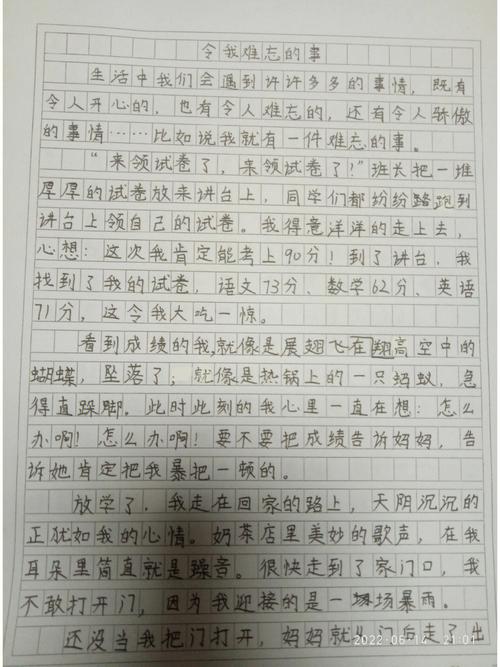 令我难忘的事
生活中我们会遇到许许多多的事情，既有
令人开心的，也有令人难忘的，还有令人骄傲
的事情……比如说我就有一件难忘的事。
“来领试卷了，来领试卷了！”班长把一堆
厚厚的试卷放来讲台上，同学们都纷纷路跑到
讲台上领自己的试卷。我得意洋洋的走上去，
心想：这次我肯定能考上90分！到了讲台，我
找到了我的试卷，语文73分、数学62分、英语
71分，这令我大吃一惊。
看到成绩的我，就像是展翅飞在翔高空中的
蝴蝶，坠落了；就像是热锅上的一只蚂蚁，急
得直跺脚。此时此刻的我心里一直在想：怎么
办啊！怎么办啊！要不要把成绩告诉妈妈，告
诉她肯定把我暴把一顿的。
放学了，我走在回家的路上，天阴沉沉的
正犹如我的心情。奶茶店里美妙的歌声，在我
耳朵里简直就是躁音。很快走到了家门口，我
不敢打开门，因为我迎接的是一场暴雨。
还没当我把门打开，妈妈就从门后走了出
2022-06-14 21:01